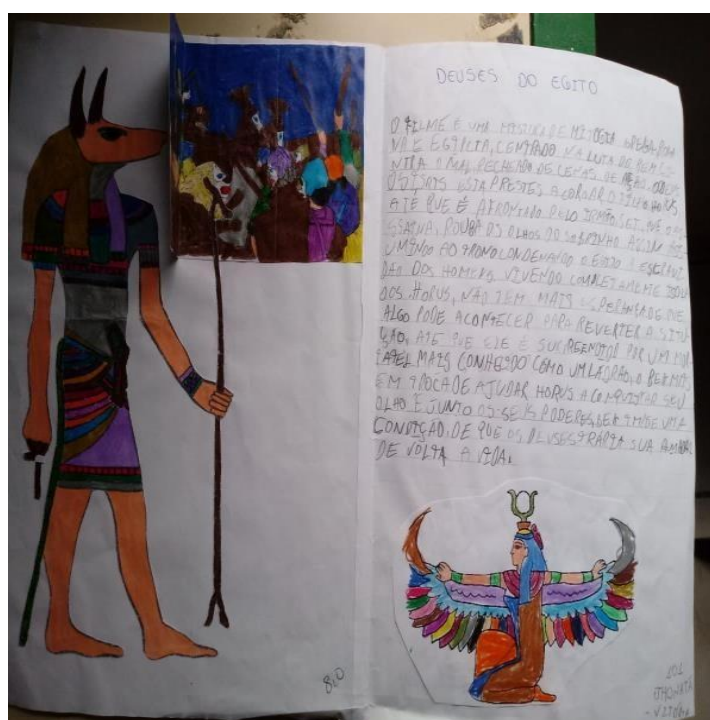 DEUSES DO EGITO
O FILME É UMA MISTURA DE MITOLOGIA GREGA, ROMA
NA E EGÍPCIA, CENTRADO NA LUTA DO BEM CO
NTRA O MAL RECHEADO DE CENAS DE AÇÃO. O DEUS
OSÍRIS ESTA PRESTES A COROAR O FILHO HORUS
ATÉ QUE É AFRONTADO PELO IRMÃO SET, QUE O
ROUBA OS OLHOS DO SOBRINHO ASSIM ASS
UMINDO AO TRONO CONDENANDO O EGITO E ESCRAVI
DÃO DOS HOMENS, VIVENDO COMPLETAMENTE ISOLA
DOS. HORUS, NÃO TEM MAIS ESPERANÇA DE QUE
ALGO PODE ACONTECER PARA REVERTER A SITU
AÇÃO, ATÉ QUE ELE É SURREENDIDO POR UM MOR
MAIS CONHECIDO COMO UM LADRÃO, O BEK MAS
EM TROCA DE AJUDAR HORUS A CONQUISTAR SEU
OLHO E JUNTO OS SEUS PODERES, BEK IMPÕE UMA
CONDIÇÃO, DE QUE OS DEUSES TRARIA SUA AMADA
DE VOLTA A VIDA.
8,0
801